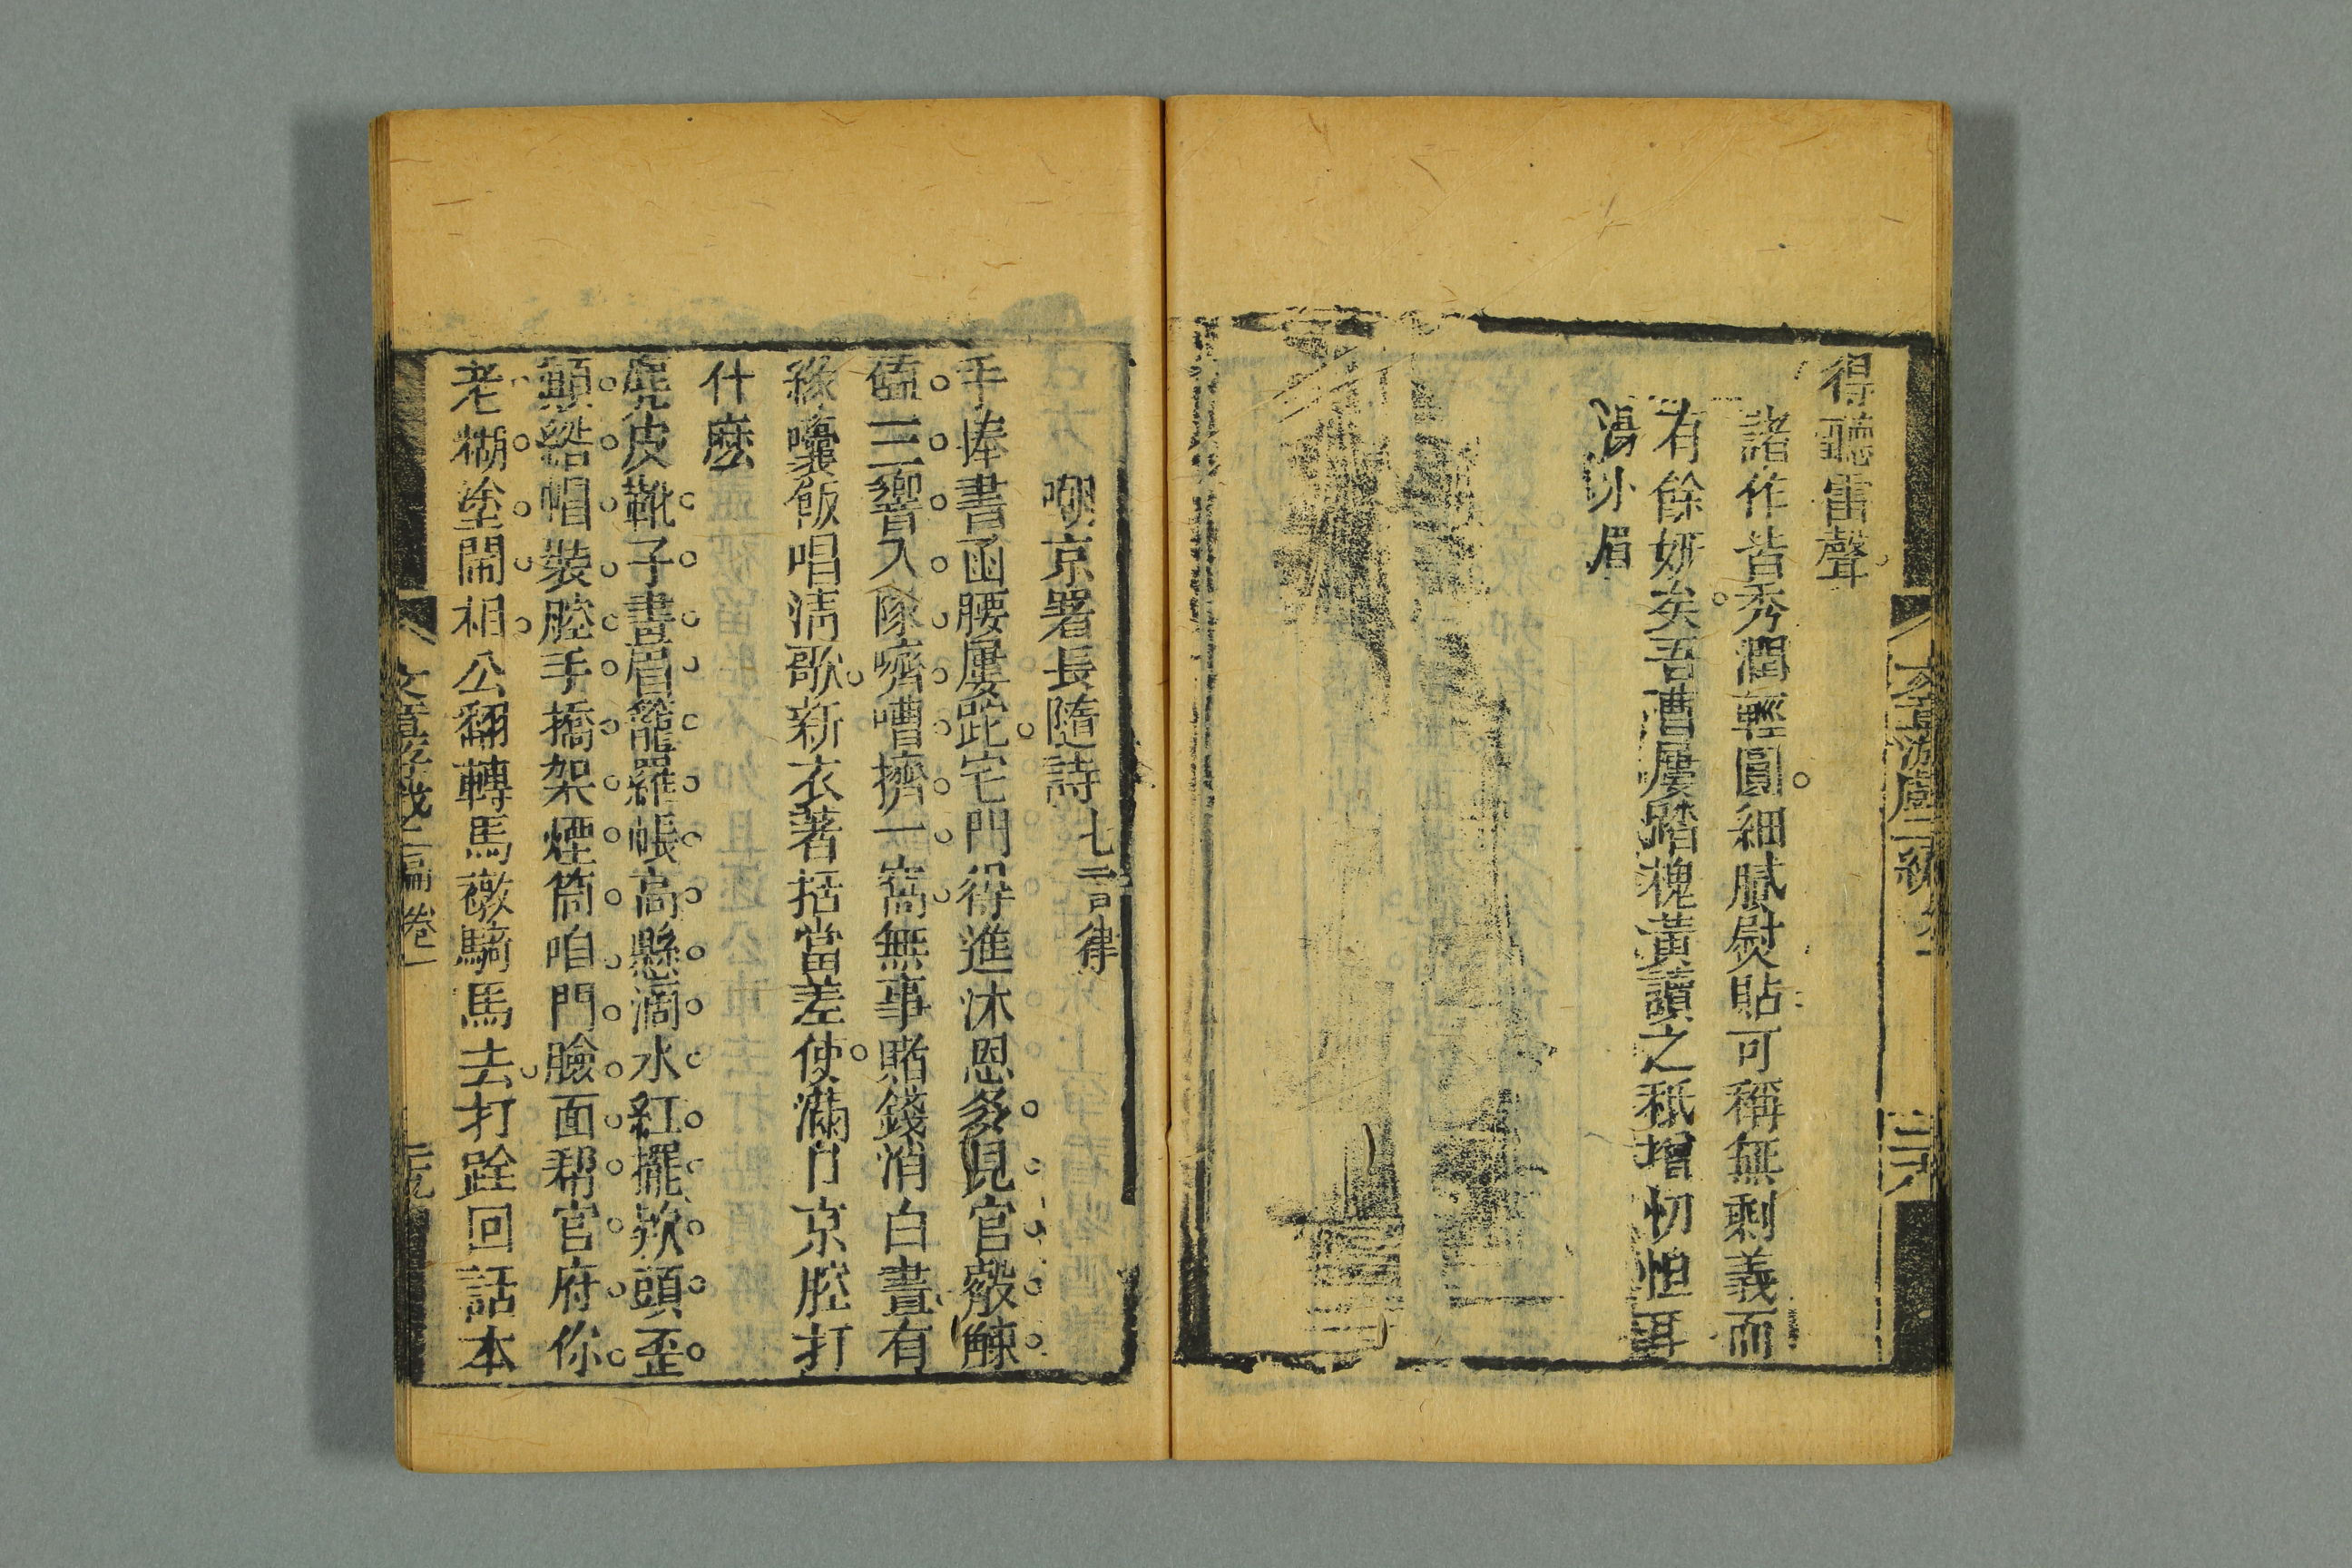 得聽雷聲
諸作皆秀潤輕圓細膩熨貼可稱無剩義而
有餘妍矣吾曹屢踏槐黃讀之秪增忉怛耳
湯小眉
文章游戲二編 卷一
三六
嘲京署長隨詩 七言律
手捧書函腰屢跎宅門得進沐恩多見官觳觫
磕三響入隊嚌嘈擠一窩無事賭錢消白晝有
緣囊飯唱清歌新衣著括當差使滿口京腔打
什麽
麂皮靴子晝眉籠羅帳高懸滴水紅擺款頭歪
裝腔手撟架煙筒咱門臉面帮官府你
老糊塗鬧相公翻轉馬褂騎馬去打跧回話本
文章游戲二編 卷一